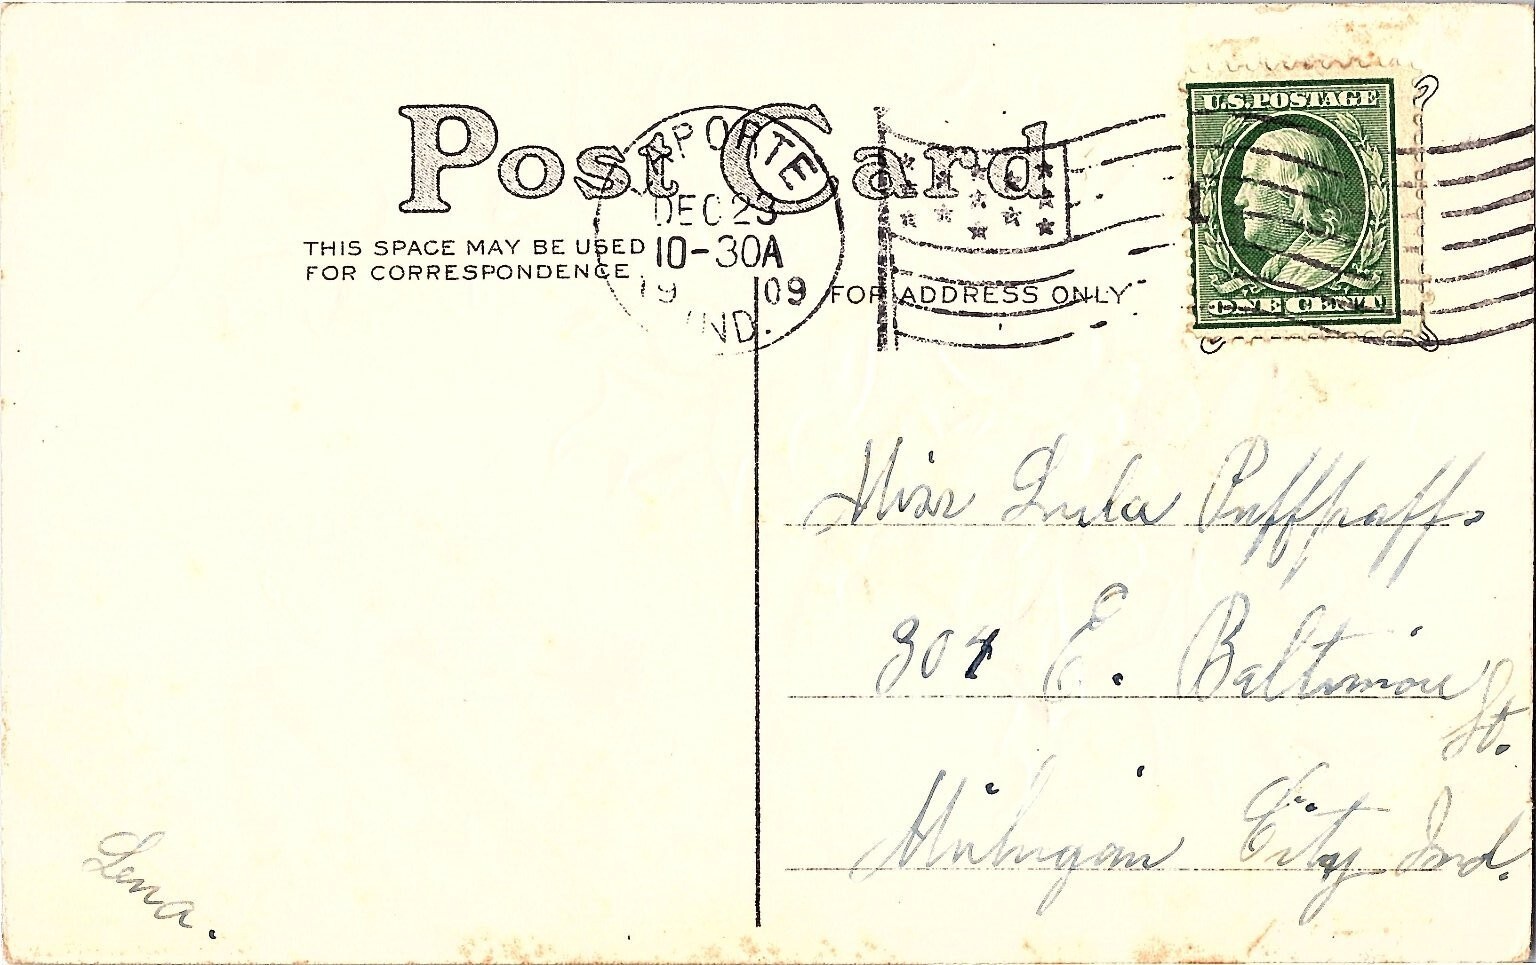 Post Card
LAPORTE
DEC 23
10-30A
1909
IND.
THIS SPACE MAY BE USED
FOR CORRESPONDENCE
FOR ADDRESS ONLY
U.S. POSTAGE
1
ONE CENT
Miss Lula Puffpaff.
304 E. Baltimore
St.
Michigan City Ind.
Lena.